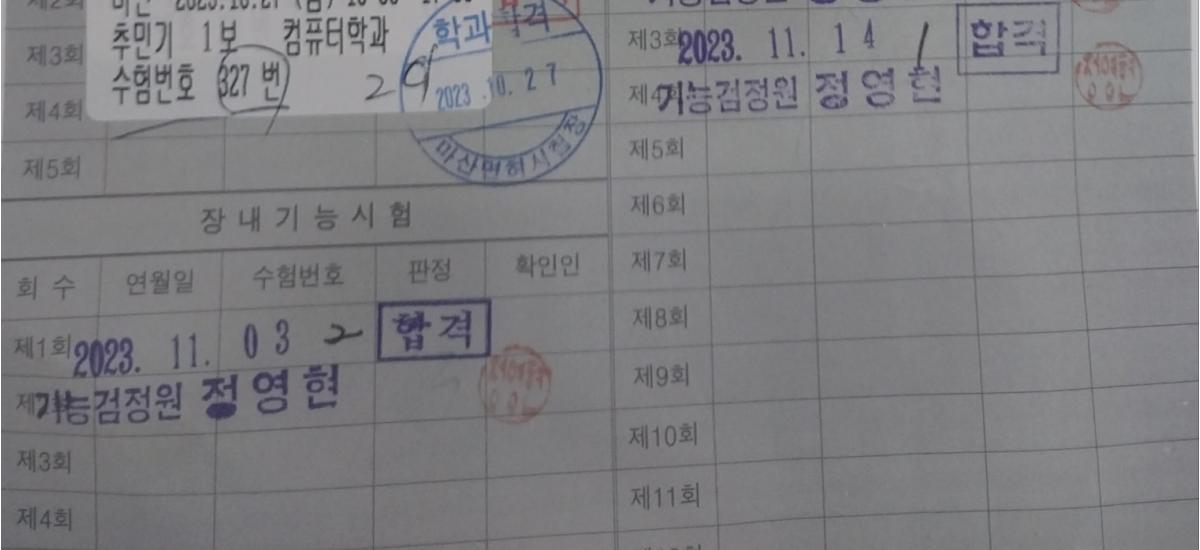 제3회
제4회
제5회
추민기 1보 컴퓨터학과
수험번호 327 번
29
학과 합격
2023.10.27
마산면허시험장
장내기능시험
회수 연월일 수험번호 판정 확인인
제1회 2023. 11. 03 2 합격
기능검정원 정영현
제3회
제4회
제3회 2023. 11. 14 1 합격
제4회 기능검정원 정영현
제5회
제6회
제7회
제8회
제9회
제10회
제11회